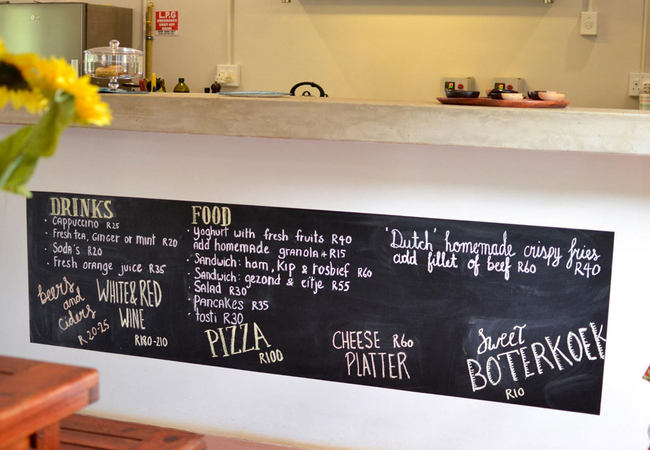 L.P.G
DRINKS
· Cappuccino R25
· Fresh tea, Ginger or mint R20
· Soda's R20
· Fresh orange juice R35
beers and ciders
R20-25
WHITE & RED
WINE
R180-210
FOOD
· Yoghurt with fresh fruits R40
add homemade granola + R15
· Sandwich: ham, Kip & rosbief R60
· Sandwich: gezond & eitje R55
· Salad R30
· Pancakes R35
· Tosti R30
PIZZA
R100
'Dutch' homemade crispy fries
R40
add fillet of beef R60
CHEESE R60
PLATTER
Sweet
BOTERKOEK
R10